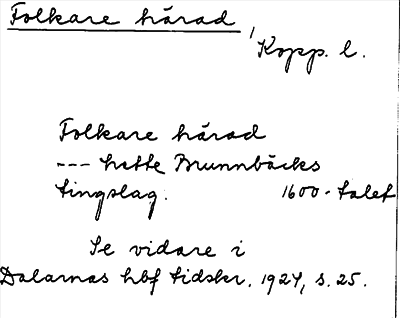 Folkare härad
Kopp. l.
Folkare härad
--- hette Brunnbäcks
tingslag. 1600-talet
Se vidare i
Dalarnas hbf tidskr. 1924, s. 25.